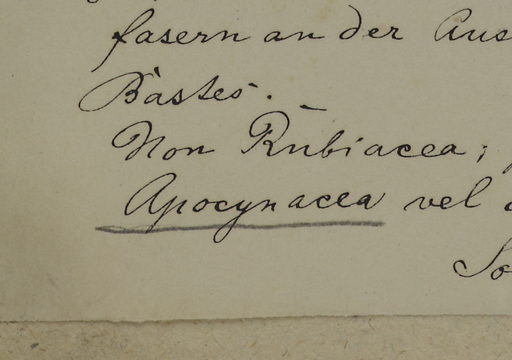 fasern an der Aus
Bastes.
Non Rubiacea;
Apocynacea vel
So